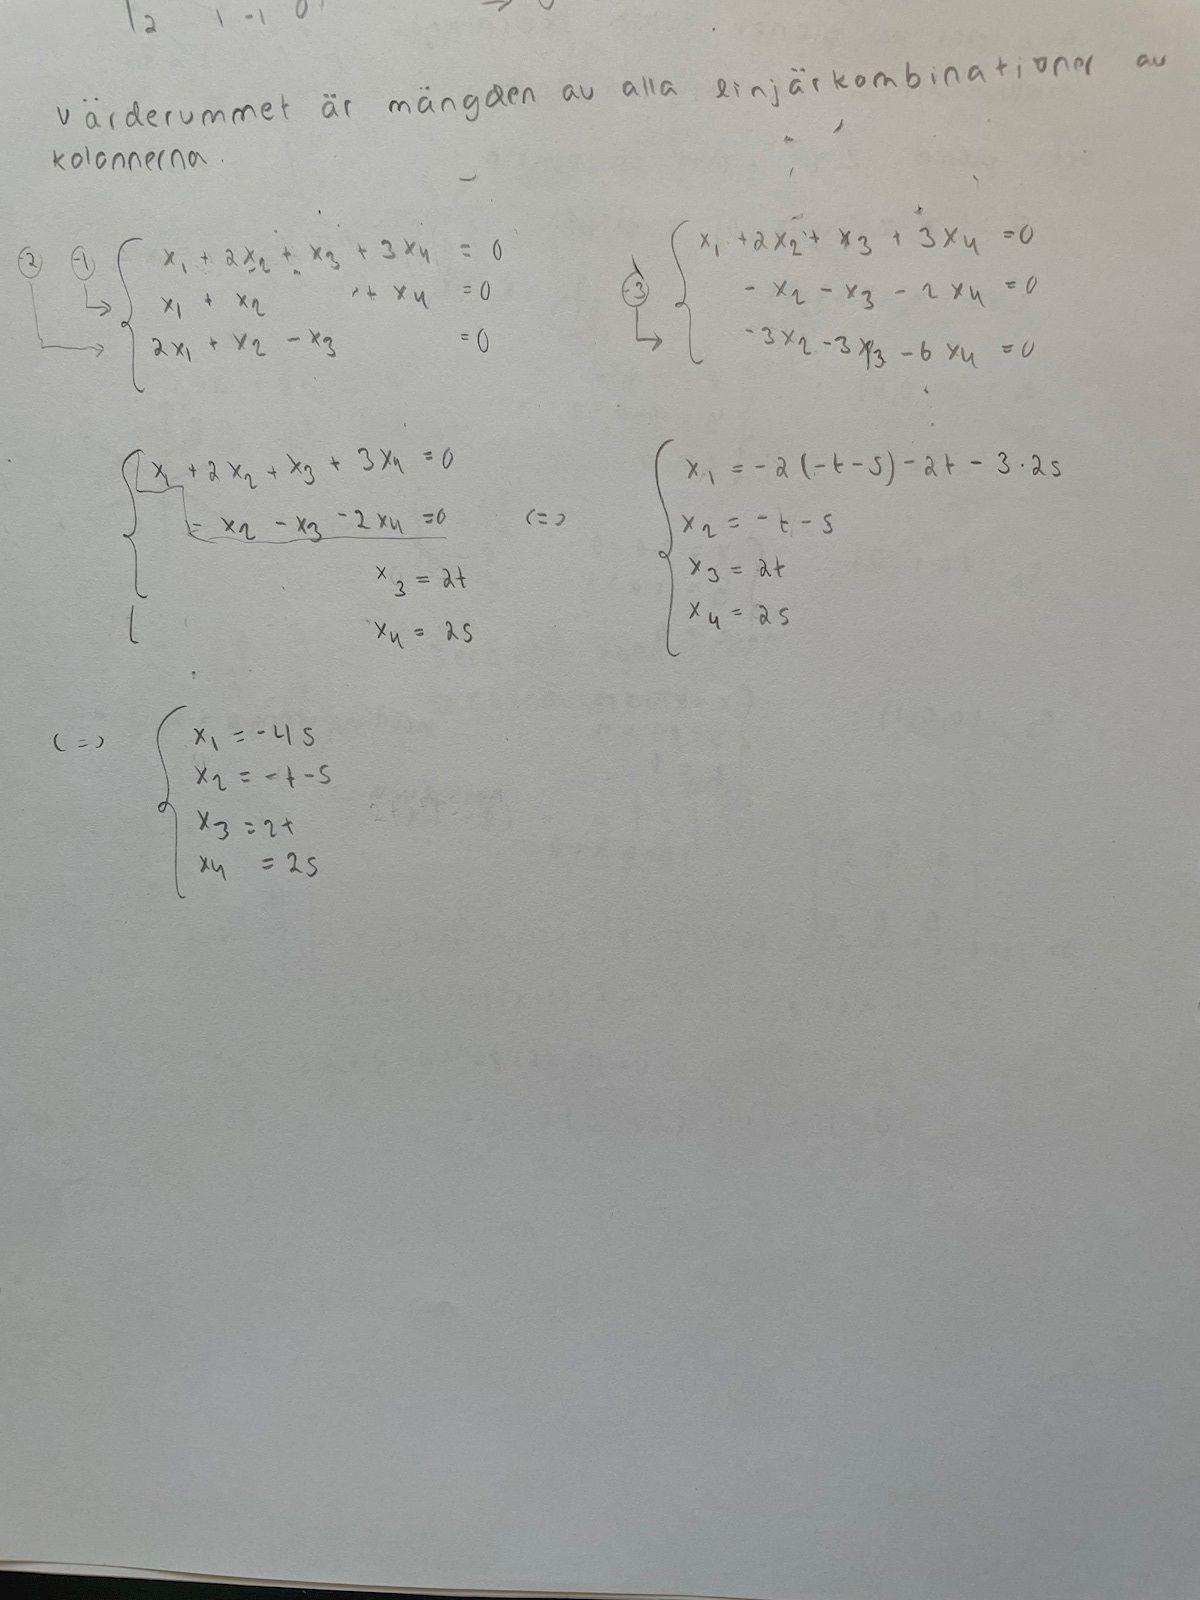 2 1 -1 0
värderummet är mängden av alla linjärkombinationer av
kolonnerna.
-2 -1 x1 + 2x2 + x3 + 3x4 = 0
x1 + x2 + x4 = 0
2x1 + x2 - x3 = 0
-3 x1 + 2x2 + x3 + 3x4 = 0
- x2 - x3 - 2x4 = 0
-3x2 - 3x3 - 6x4 = 0
x1 + 2x2 + x3 + 3x4 = 0
- x2 - x3 - 2x4 = 0
x3 = 2t
x4 = 2s
(=) x1 = -2(-t-s) - 2t - 3·2s
x2 = -t - s
x3 = 2t
x4 = 2s
(=) x1 = -4s
x2 = -t-s
x3 = 2t
x4 = 2s